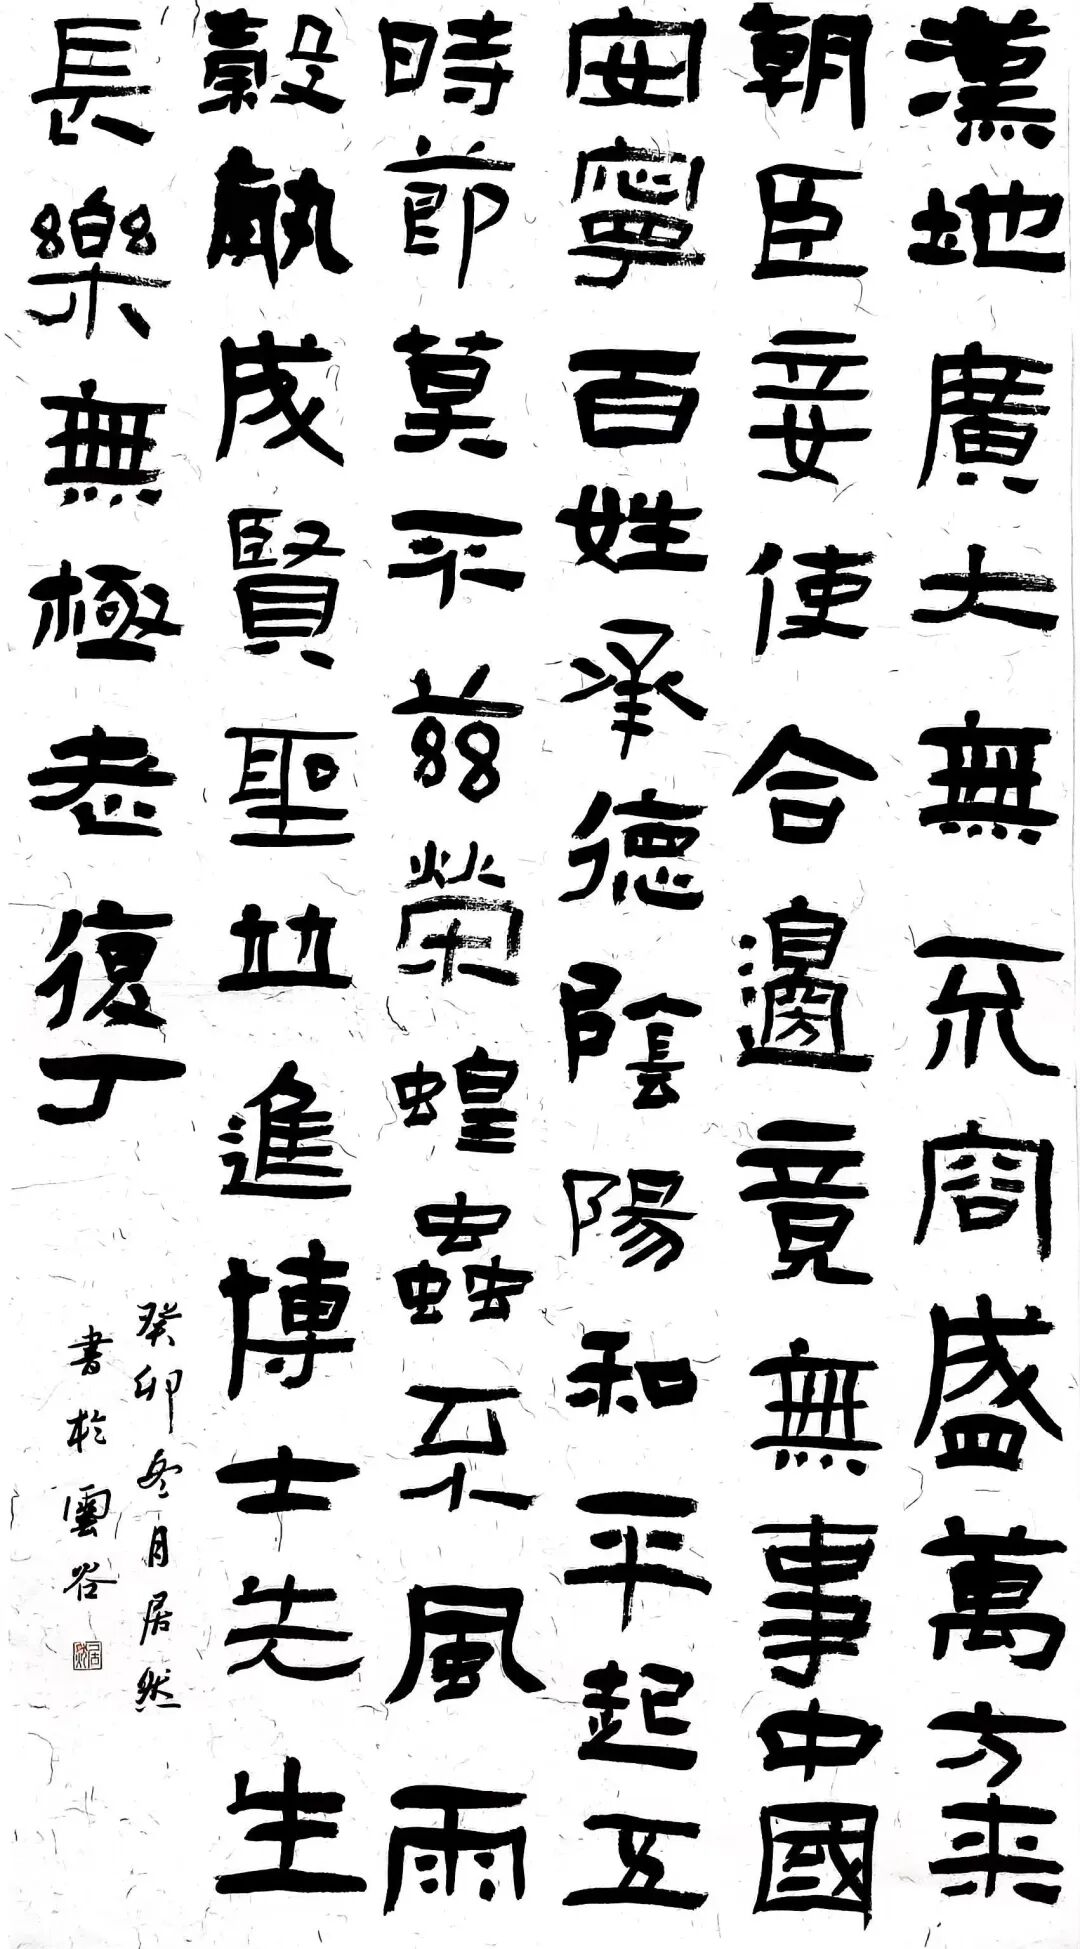 漢地廣大無不容盛萬方來
朝臣妾使合邊竟無事中國
安寧百姓承德陰陽和平起五
時節莫不茲榮蝗蟲不風雨
穀孰成賢聖並進博士先生
長樂無極老復丁
癸卯冬月居然
書於雲谷
居然